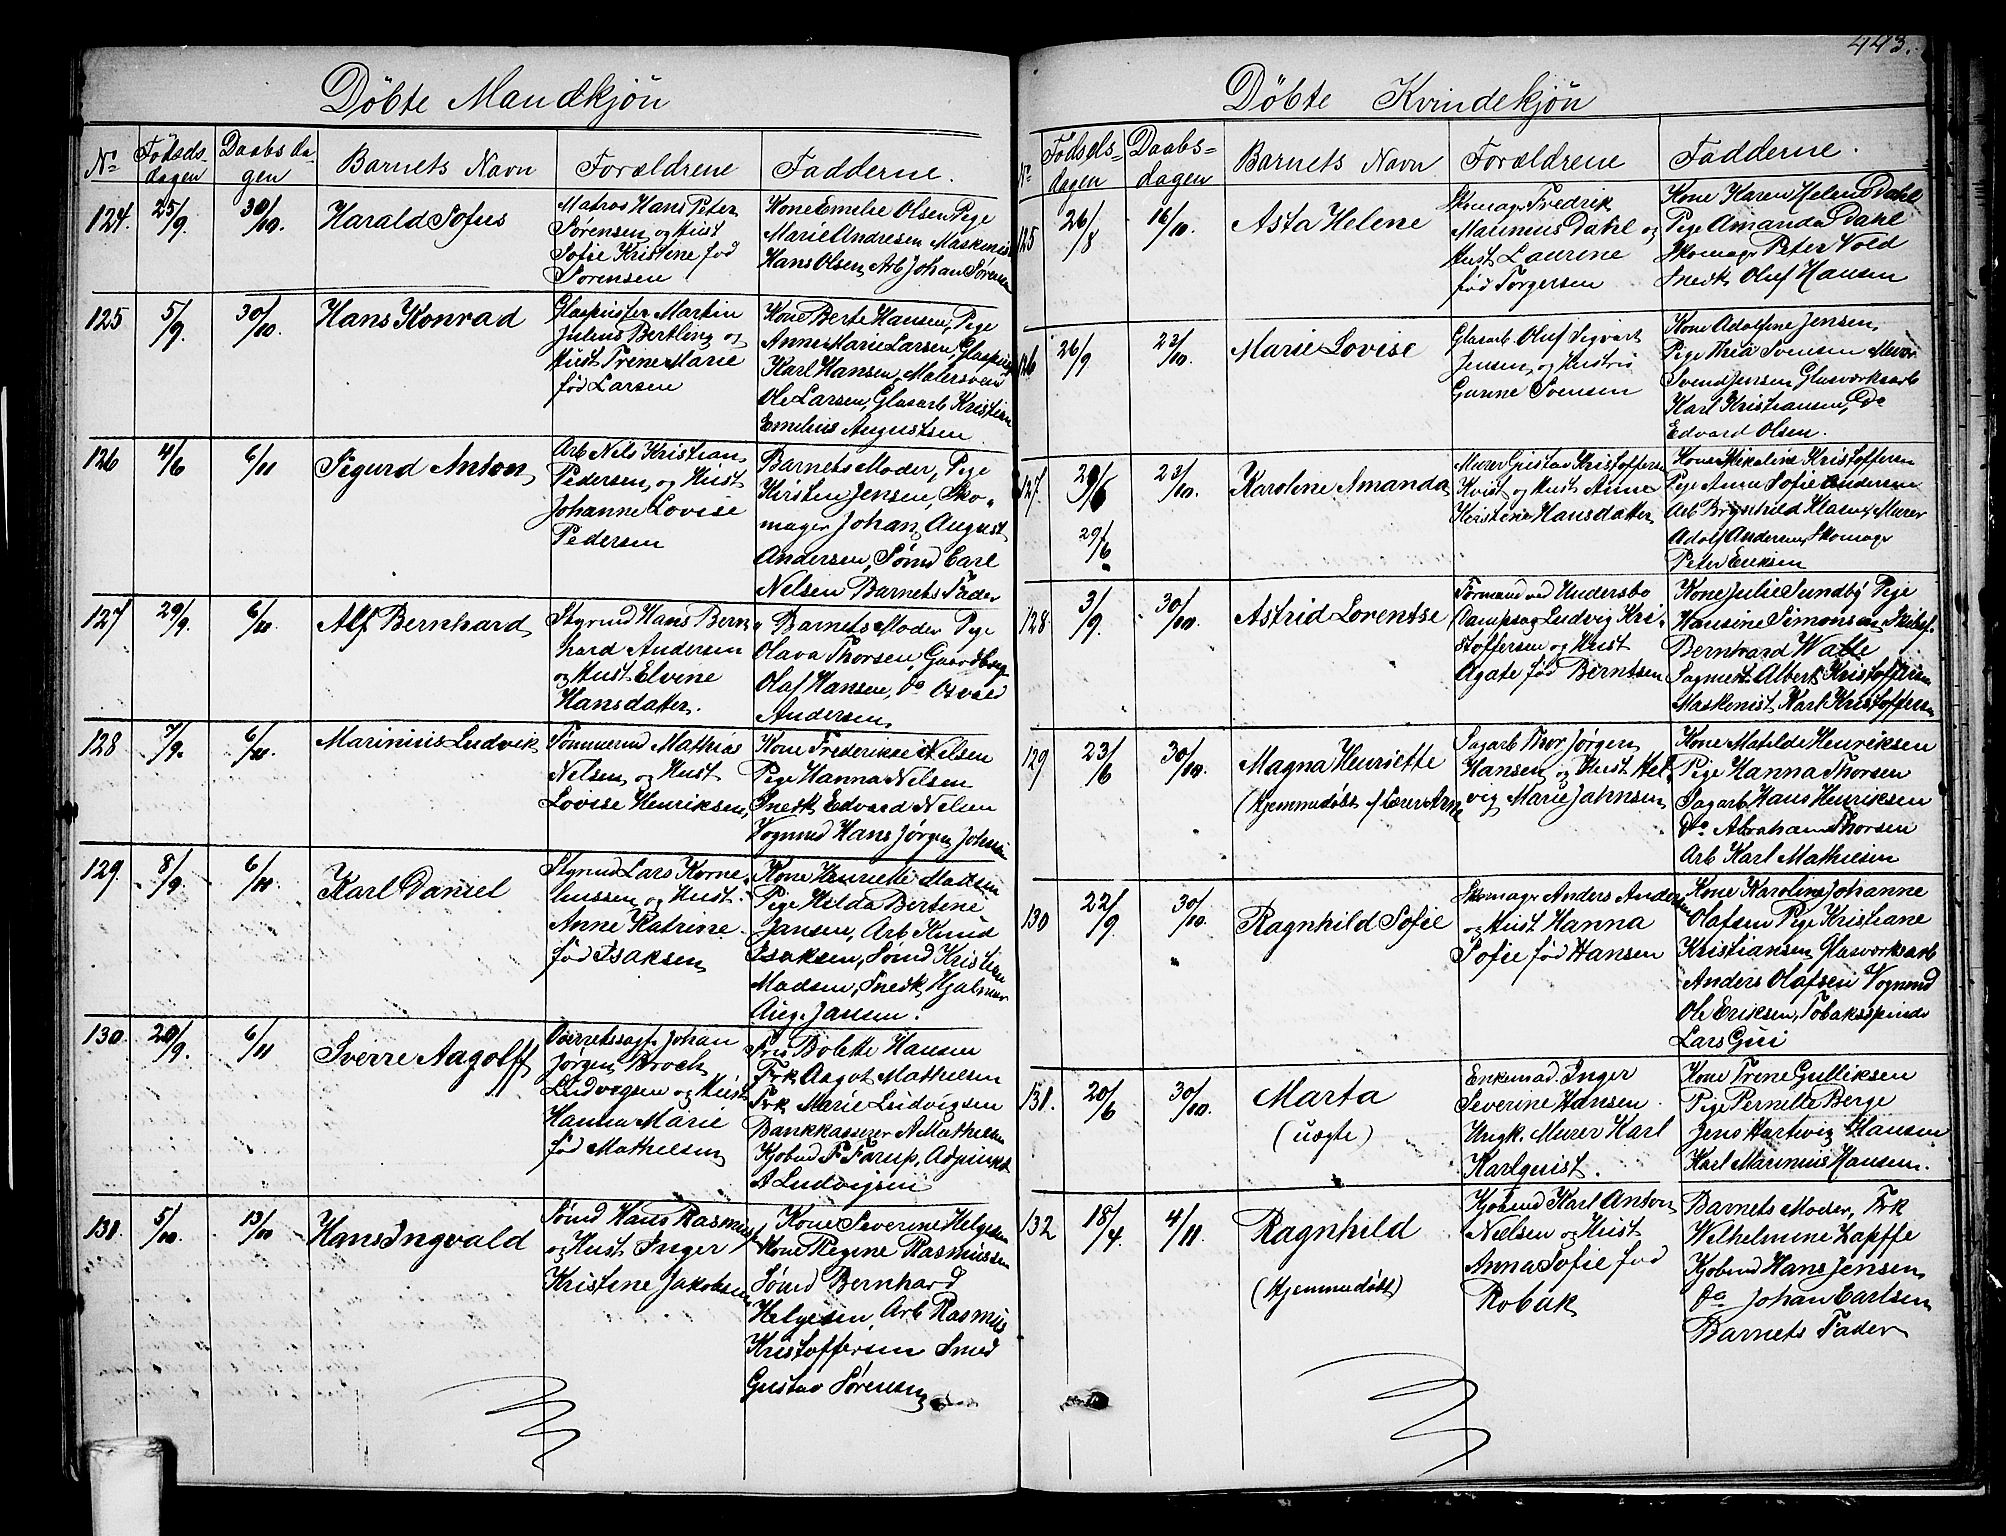 443.
Döbte Mandkjön
No Födselsdagen Daabsdagen Barnets Navn Forældrene Fadderne.
124. 25/9. 30/10. Harald Sofus
Matros Hans Peter
Sørensen og Hust
Sofie Kristine fød
Sørensen
Kone Emelie Olsen Pige
Marie Andresen Maskinist
Hans Olsen, Arb Johan Sørensen
125 5/9. 30/10. Hans Konrad
Glaspuster Martin
Julius Bertling og
Hust Trene Marie
fød Larsen
Kone Berte Hansen, Pige
Anne Marie Larsen, Glaspust
Karl Hansen, Malersvend
Ole Larsen, Glasarb Kristian
Emelius Augustsen
126 4/6 6/11 Sigurd Anton
Arb Nels Kristian
Pedersen og Hust
Johanne Lovise
Pedersen
Barnets Moder, Pige
Kirsten Jensen, Sko-
mager Johan August
Andersen, Sømd Carl
Nelsen Barnets Fader
127 29/9. 6/11 Alf Bernhard
Styrmd Hans Bern
hard Andersen
og Hust Elvine
Hansdatter.
Barnets Moder Pige
Olava Thorsen, Gaardbrug
Olaf Hansen, do Osvald
Andersen
128 7/9. 6/11. Marinius Ludvik
Tömmermd Mathias
Nelsen og Hust
Lovise Henriksen
Kone Frederikke Nelsen
Pige Hanna Nelsen
Snedk Edvard Nelsen
Vognmd Hans Jørgen Johnsen
129. 8/9. 6/11 Karl Daniel
Styrmd Lars Korne-
liussen og Hust.
Anne Katrine
fød Isaksen
Kone Henriette Madsen
Pige Hilda Bertine
Jansen, Arb Knud
Isaksen, Sømd Kristian
Madsen, Snedk Hjalmar
Aug. Jansen.
130. 20/9. 6/11 Sverre Aagolff
Overretssagf. Johan
Jørgen Broch
Ludvigsen og Hust
Hanna Marie
fød Mathiesen
Fru Bolette Hansen
Frk Aagot Mathiesen
Frk Marie Ludvigsen
Bankkasserer A Mathiesen
Kjøbmd F Farup, Adjunkt
A Ludvigsen
131. 5/10. 13/11 Hans Ingvald
Sømd Hans Rasmussen
og Hust Inger
Kristine Jakobsen
Kone Severine Helgesen
Kone Regine Rasmussen
Sømd Bernhard
Helgesen, Arb Rasmus
Kristoffersen Smed
Gustav Sørensen
Döbte Kvindekjön
No Födselsdagen Daabsdagen Barnets Navn Forældrene Fadderne.
125 26/8 16/10. Asta Helene
Skomagr Fredrik
Maurinius Dahl og
Hust Laurine
fød Torgersen
Kone Karen Helene Dahl
Pige Amanda Dahl
Skomagr Peter Vold
Snedk Oluf Hansen
126 26/9 23/10. Marie Lovise
Glasarb Oluf Sigvart
Jensen og Hustru
Gurine Svensen
Kone Adolfine Jensen,
Pige Thea Svensen Murer
Svend Jensen Glasværksarb
Karl Kristiansen, Do
Edvard Olsen.
127. 29/6 23/10. Karoline Amanda
29/6
Murer Gustav Kristoffersen
Kvist og Hust Anne
Kirstine Hansdatter
Kone Mikaline Kristoffersen
Pige Anna Sofie Andersen
Arb Brynhild Klasen, Murer
Adolf Andersen, Skomagr
Peter Eriksen
128. 3/9. 30/10. Astrid Lorentse
Formand ved Undersbo
Dampsag Ludvig Kri-
stoffersen og Hust
Agate fød Berntsen
Kone Julie Sundbÿ Pige
Hansine Simonsen, Skibsf.
Bernhard Walle
Sagmest Albert Kristoffersen
Maskenist Karl Kristoffersen
129 23/6 30/10. Magna Henriette
(Hjemmedøbt af Lærer Arne
Sagarb Thor Jørgen
Hansen og Hust Hel-
vig Marie Jahnsen
Kone Matilde Henriksen
Pige Hanna Thorsen
Sagarb Hans Henriksen
do Abraham Thorsen
Arb Karl Mathiesen
130 22/9. 30/10. Ragnhild Sofie
Skomagr Anders Andersen
og Hust Hanna
Sofie fød Hansen
Kone Karoline Johanne
Olafsen Pige Kristiane
Kristiansen Glasværksarb
Anders Olafsen Vognmd
Ole Eriksen, Tobaksspinder
Lars Gui
131. 20/6 30/10. Marta
(uægte)
Enkemad. Inger
Severine Hansen.
Ungk. Murer Karl
Karlquist.
Kone Trene Gulliksen
Pige Pernille Berge
Jens Hartvig Hansen
Karl Marinius Hansen.
132 18/4. 4/11 Ragnhild
(Hjemmedøbt)
Kjøbmd Karl Anton
Nielsen og Hust
Anna Sofie fød
Robak
Barnets Moder, Frk
Wilhelmine Zapffe
Kjøbmd Hans Jensen
do Johan Carlsen
Barnets Fader